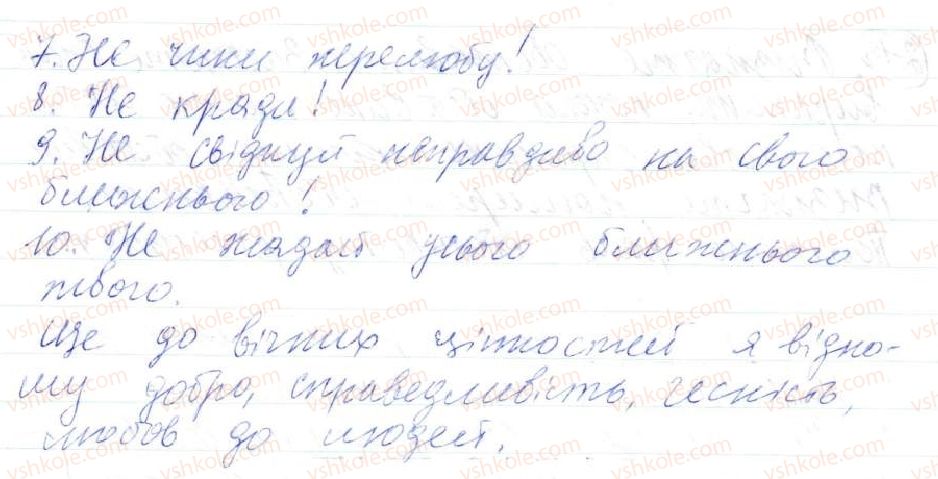 7. Не чини перелюбу!
8. Не кради!
9. Не свідкуй неправдиво на свого
ближнього!
10. Не жадай усього ближнього
твого.
Ще до вічних цінностей я відно-
шу добро, справедливість, чесність,
любов до людей.